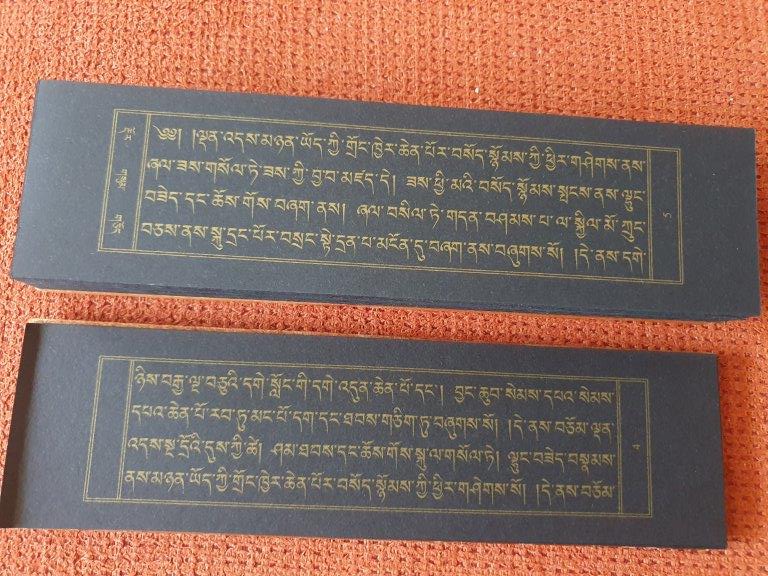 ༄༅། །ལྡན་འདས་མཉན་ཡོད་ཀྱི་གྲོང་ཁྱེར་ཆེན་པོར་བསོད་སྙོམས་ཀྱི་ཕྱིར་གཤེགས་ནས་
ཞལ་ཟས་གསོལ་ཏེ་ཟས་ཀྱི་བྱ་བ་མཛད་དེ། ཟས་ཕྱི་མའི་བསོད་སྙོམས་སྤངས་ནས་ལྷུང་
བཟེད་དང་ཆོས་གོས་བཞག་ནས། ཞལ་བསིལ་ཏེ་གདན་བཤམས་པ་ལ་སྐྱིལ་མོ་ཀྲུང་
བཅས་ནས་སྐུ་དྲང་པོར་བསྲང་སྟེ་དྲན་པ་མངོན་དུ་བཞག་ནས་བཞུགས་སོ། །དེ་ནས་དགེ་
ཉིས་བརྒྱ་ལྔ་བཅུའི་དགེ་སློང་གི་དགེ་འདུན་ཆེན་པོ་དང་། བྱང་ཆུབ་སེམས་དཔའ་སེམས་
དཔའ་ཆེན་པོ་རབ་ཏུ་མང་པོ་དག་དང་ཐབས་གཅིག་ཏུ་བཞུགས་སོ། །དེ་ནས་བཅོམ་ལྡན་
འདས་སྔ་དྲོའི་དུས་ཀྱི་ཚེ། ཤམ་ཐབས་དང་ཆོས་གོས་སྐུ་ལ་གསོལ་ཏེ། ལྷུང་བཟེད་བསྣམས་
ནས་མཉན་ཡོད་ཀྱི་གྲོང་ཁྱེར་ཆེན་པོར་བསོད་སྙོམས་ཀྱི་ཕྱིར་གཤེགས་སོ། །དེ་ནས་བཅོམ་